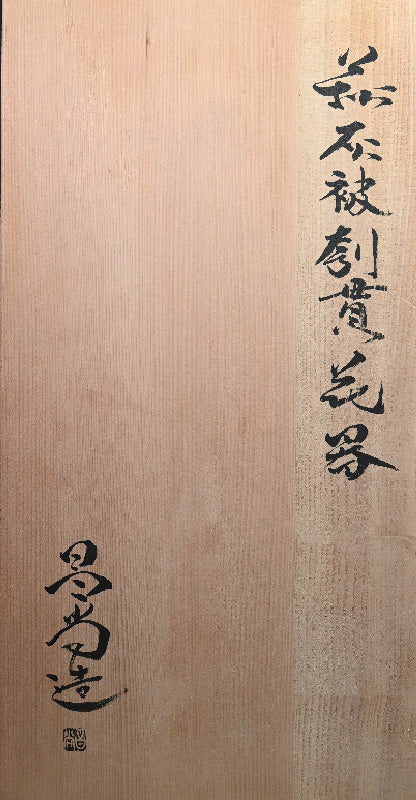 萩灰被刳貫花器
昌尚造